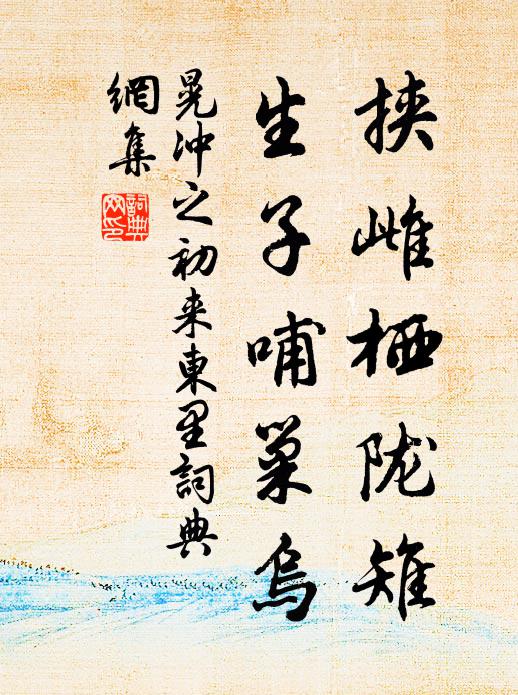 挟雌栖陇雉
生子哺巢烏
晁沖之初来東里詞典
網集
詞典網印